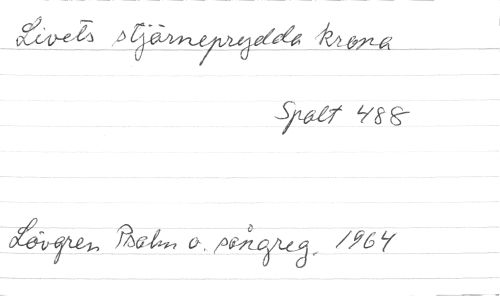 Livets stjärneprydda krona
Spalt 488
Lövgren Psalm o. sångreg. 1964